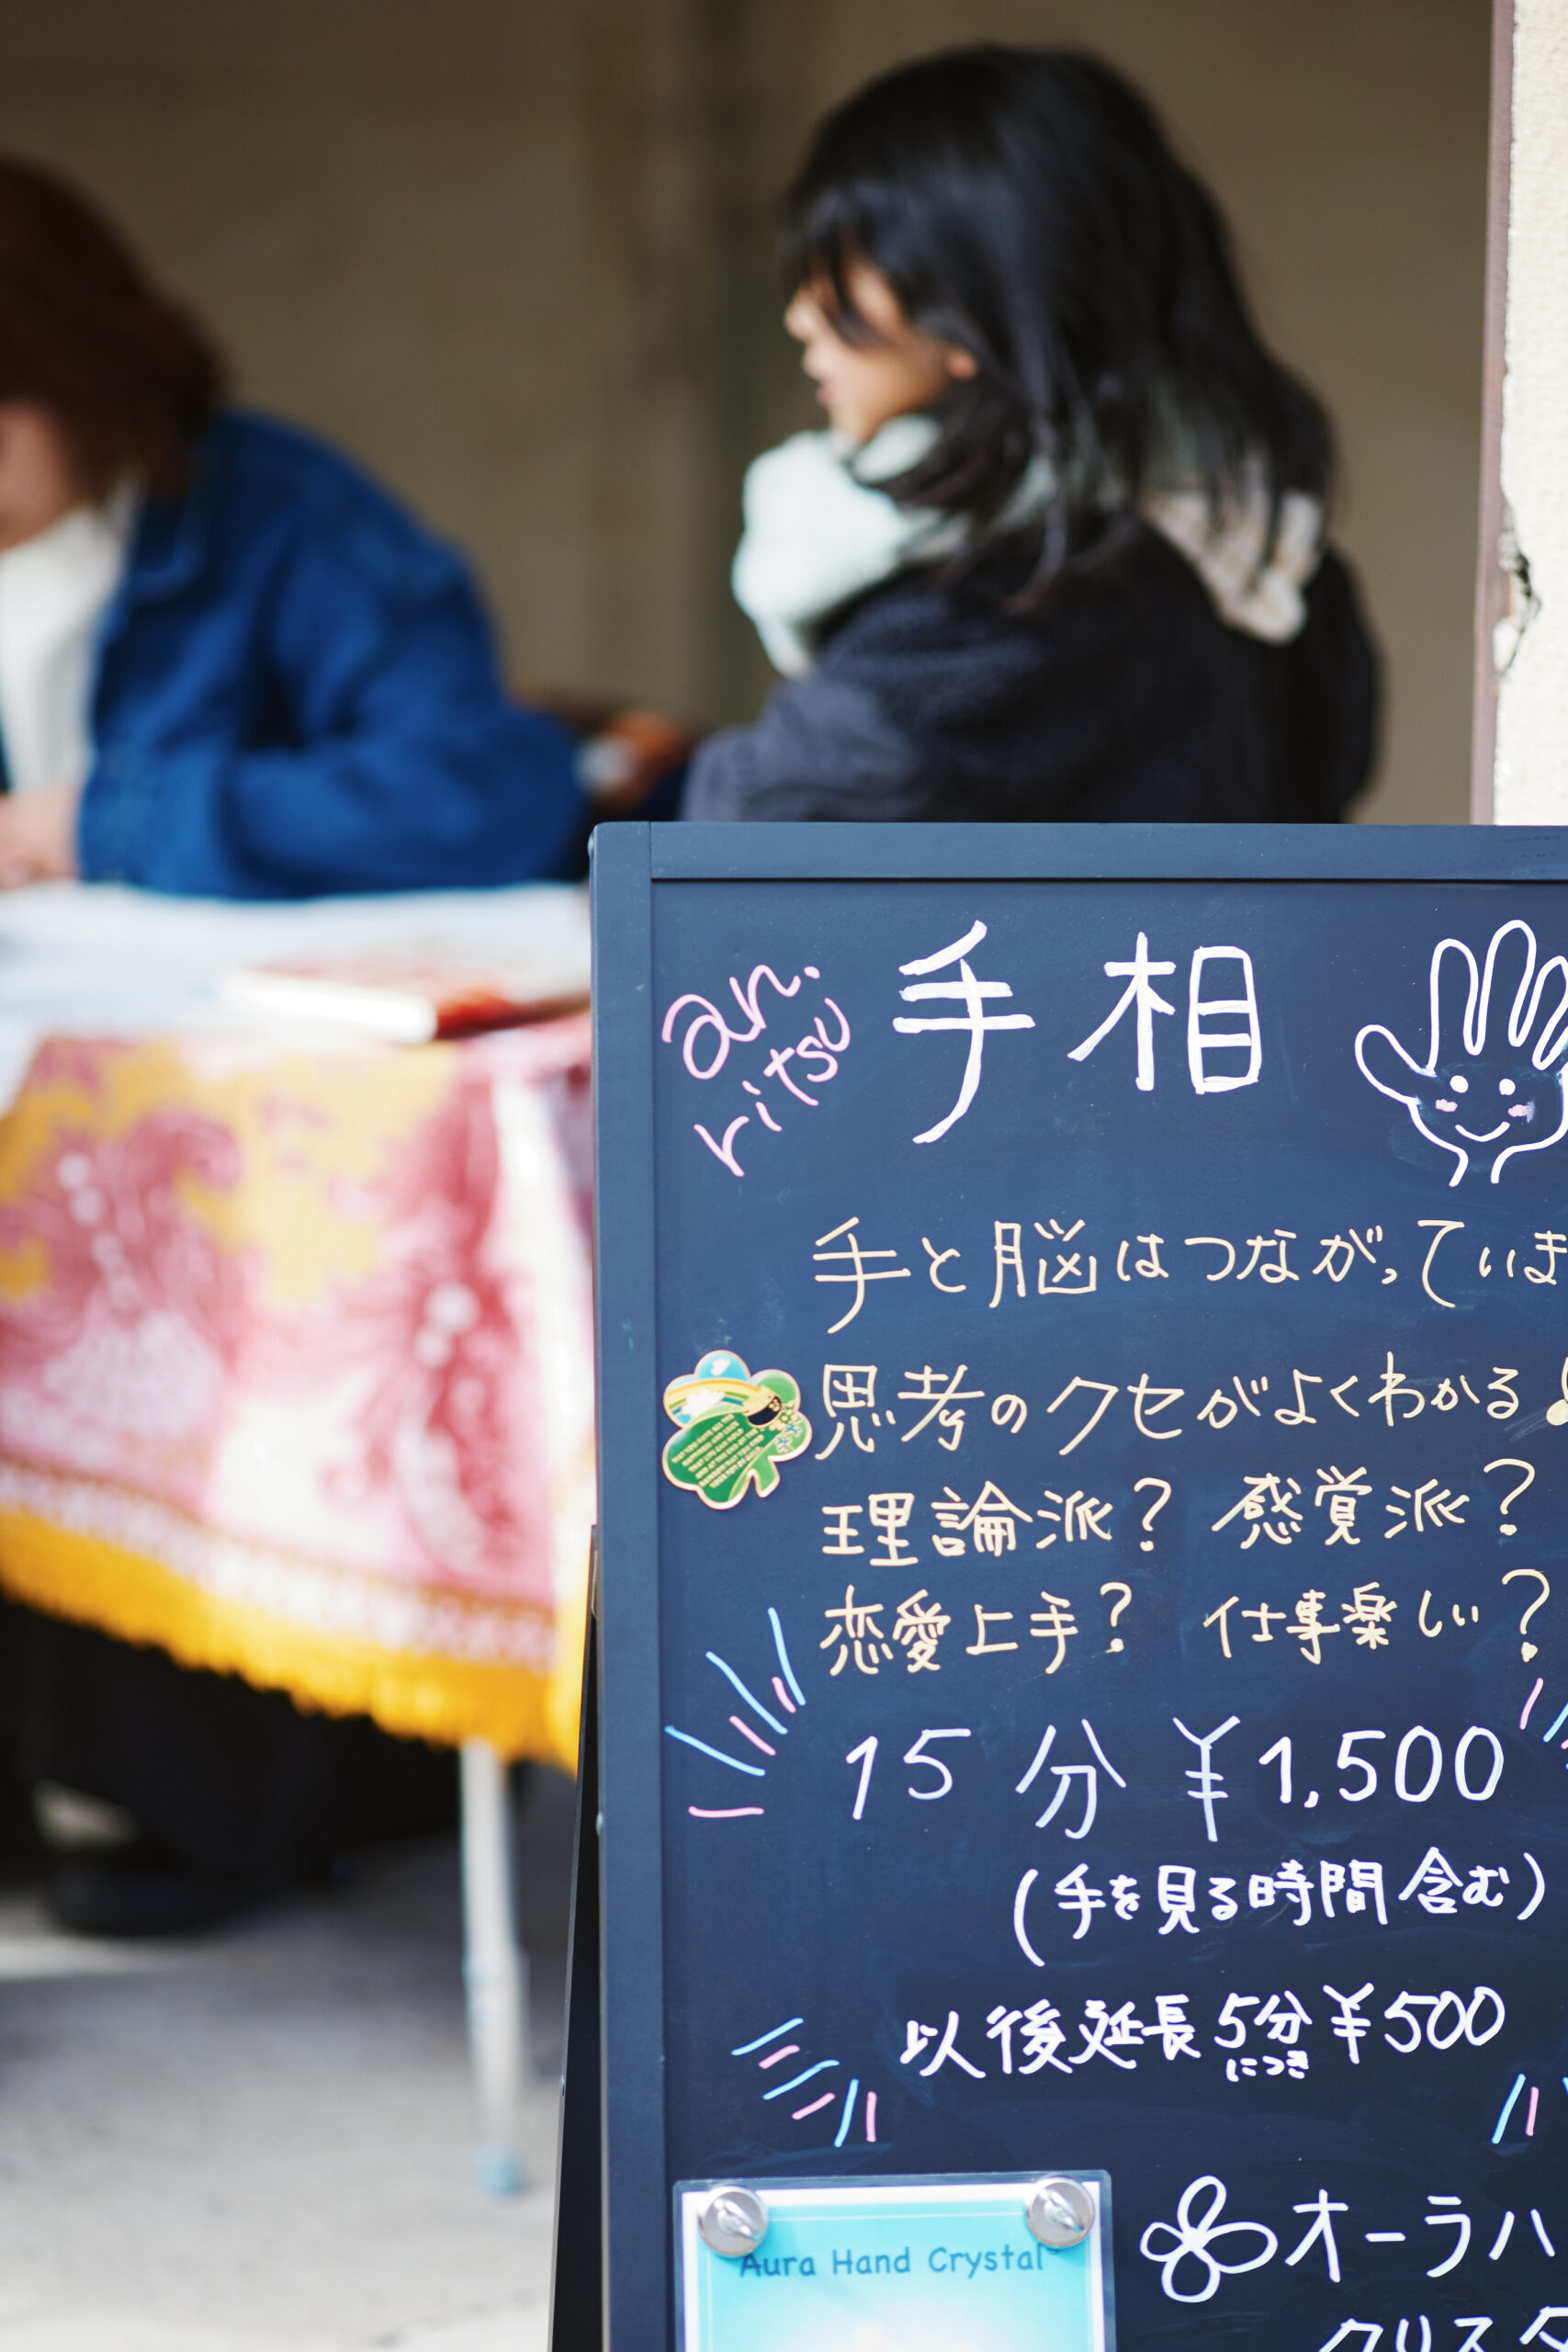 an.
ritsu
手相
手と脳はつながっていま
思考のクセがよくわかる!
理論派? 感覚派?
恋愛上手? 仕事楽しい?
15分 ¥1,500
(手を見る時間含む)
以後延長5分につき¥500
Aura Hand Crystal
オーラハ
クリスタ